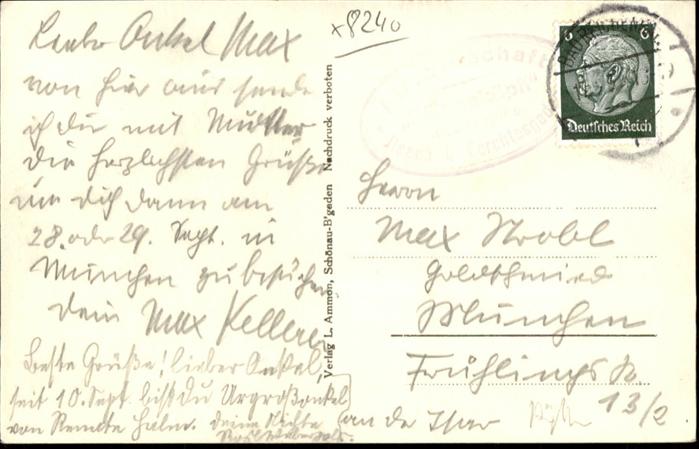 x 8240
Lieber Onkel Max
von hier aus sende
ich Dir mit Mutter
die herzlichsten Grüße
um Dich dann am
28. oder 29. Sept. in
München zu besuchen
Dein Max Kellerer
Beste Grüße! lieber Onkel,
seit 10. Sept. bist Du Urgroßonkel
von Renate Halm. Deine Nichte
Verlag L. Ammon, Schönau-B'gaden Nachdruck verboten
6 6
Deutsches Reich
Herrn
Max Strobl
Goldschmied
München
Frühlingsstr.
13/2
an der Isar